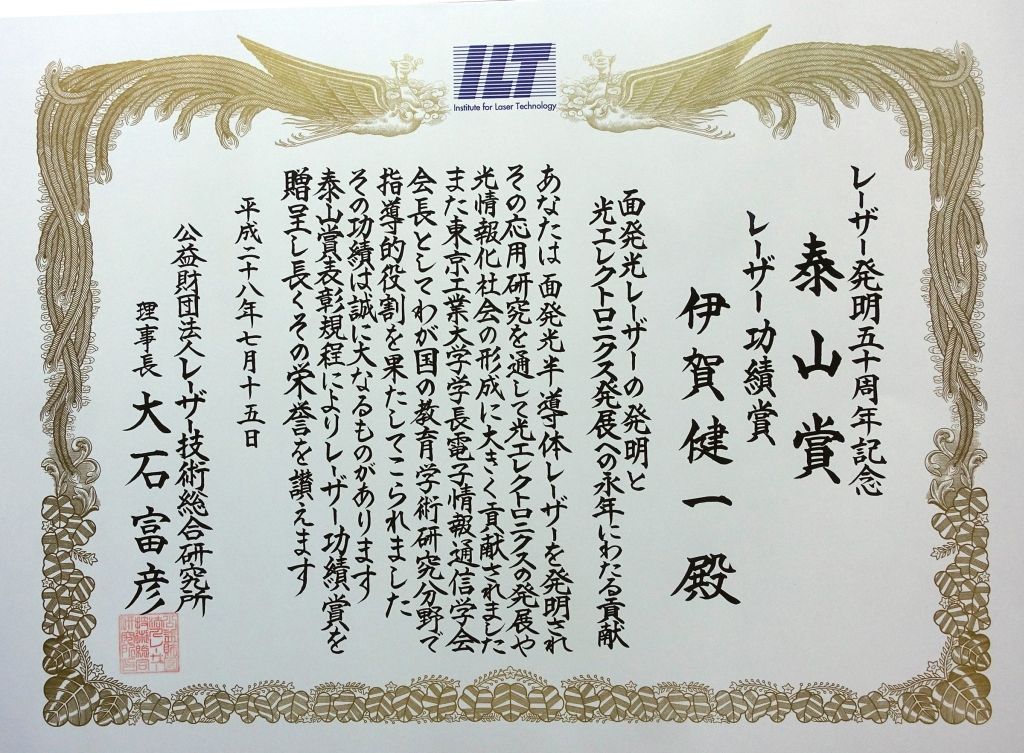 ILT
Institute for Laser Technology
レーザー発明五十周年記念
泰山賞
レーザー功績賞
伊賀健一殿
面発光レーザーの発明と
光エレクトロニクス発展への永年にわたる貢献
あなたは面発光半導体レーザーを発明され
その応用研究を通して光エレクトロニクスの発展や
光情報化社会の形成に大きく貢献されました
また東京工業大学学長電子情報通信学会
会長としてわが国の教育学術研究分野で
指導的役割を果たしてこられました
その功績は誠に大なるものがあります
泰山賞表彰規程によりレーザー功績賞を
贈呈し長くその栄誉を讃えます
平成二十八年七月十五日
公益財団法人レーザー技術総合研究所
理事長 大石富彦